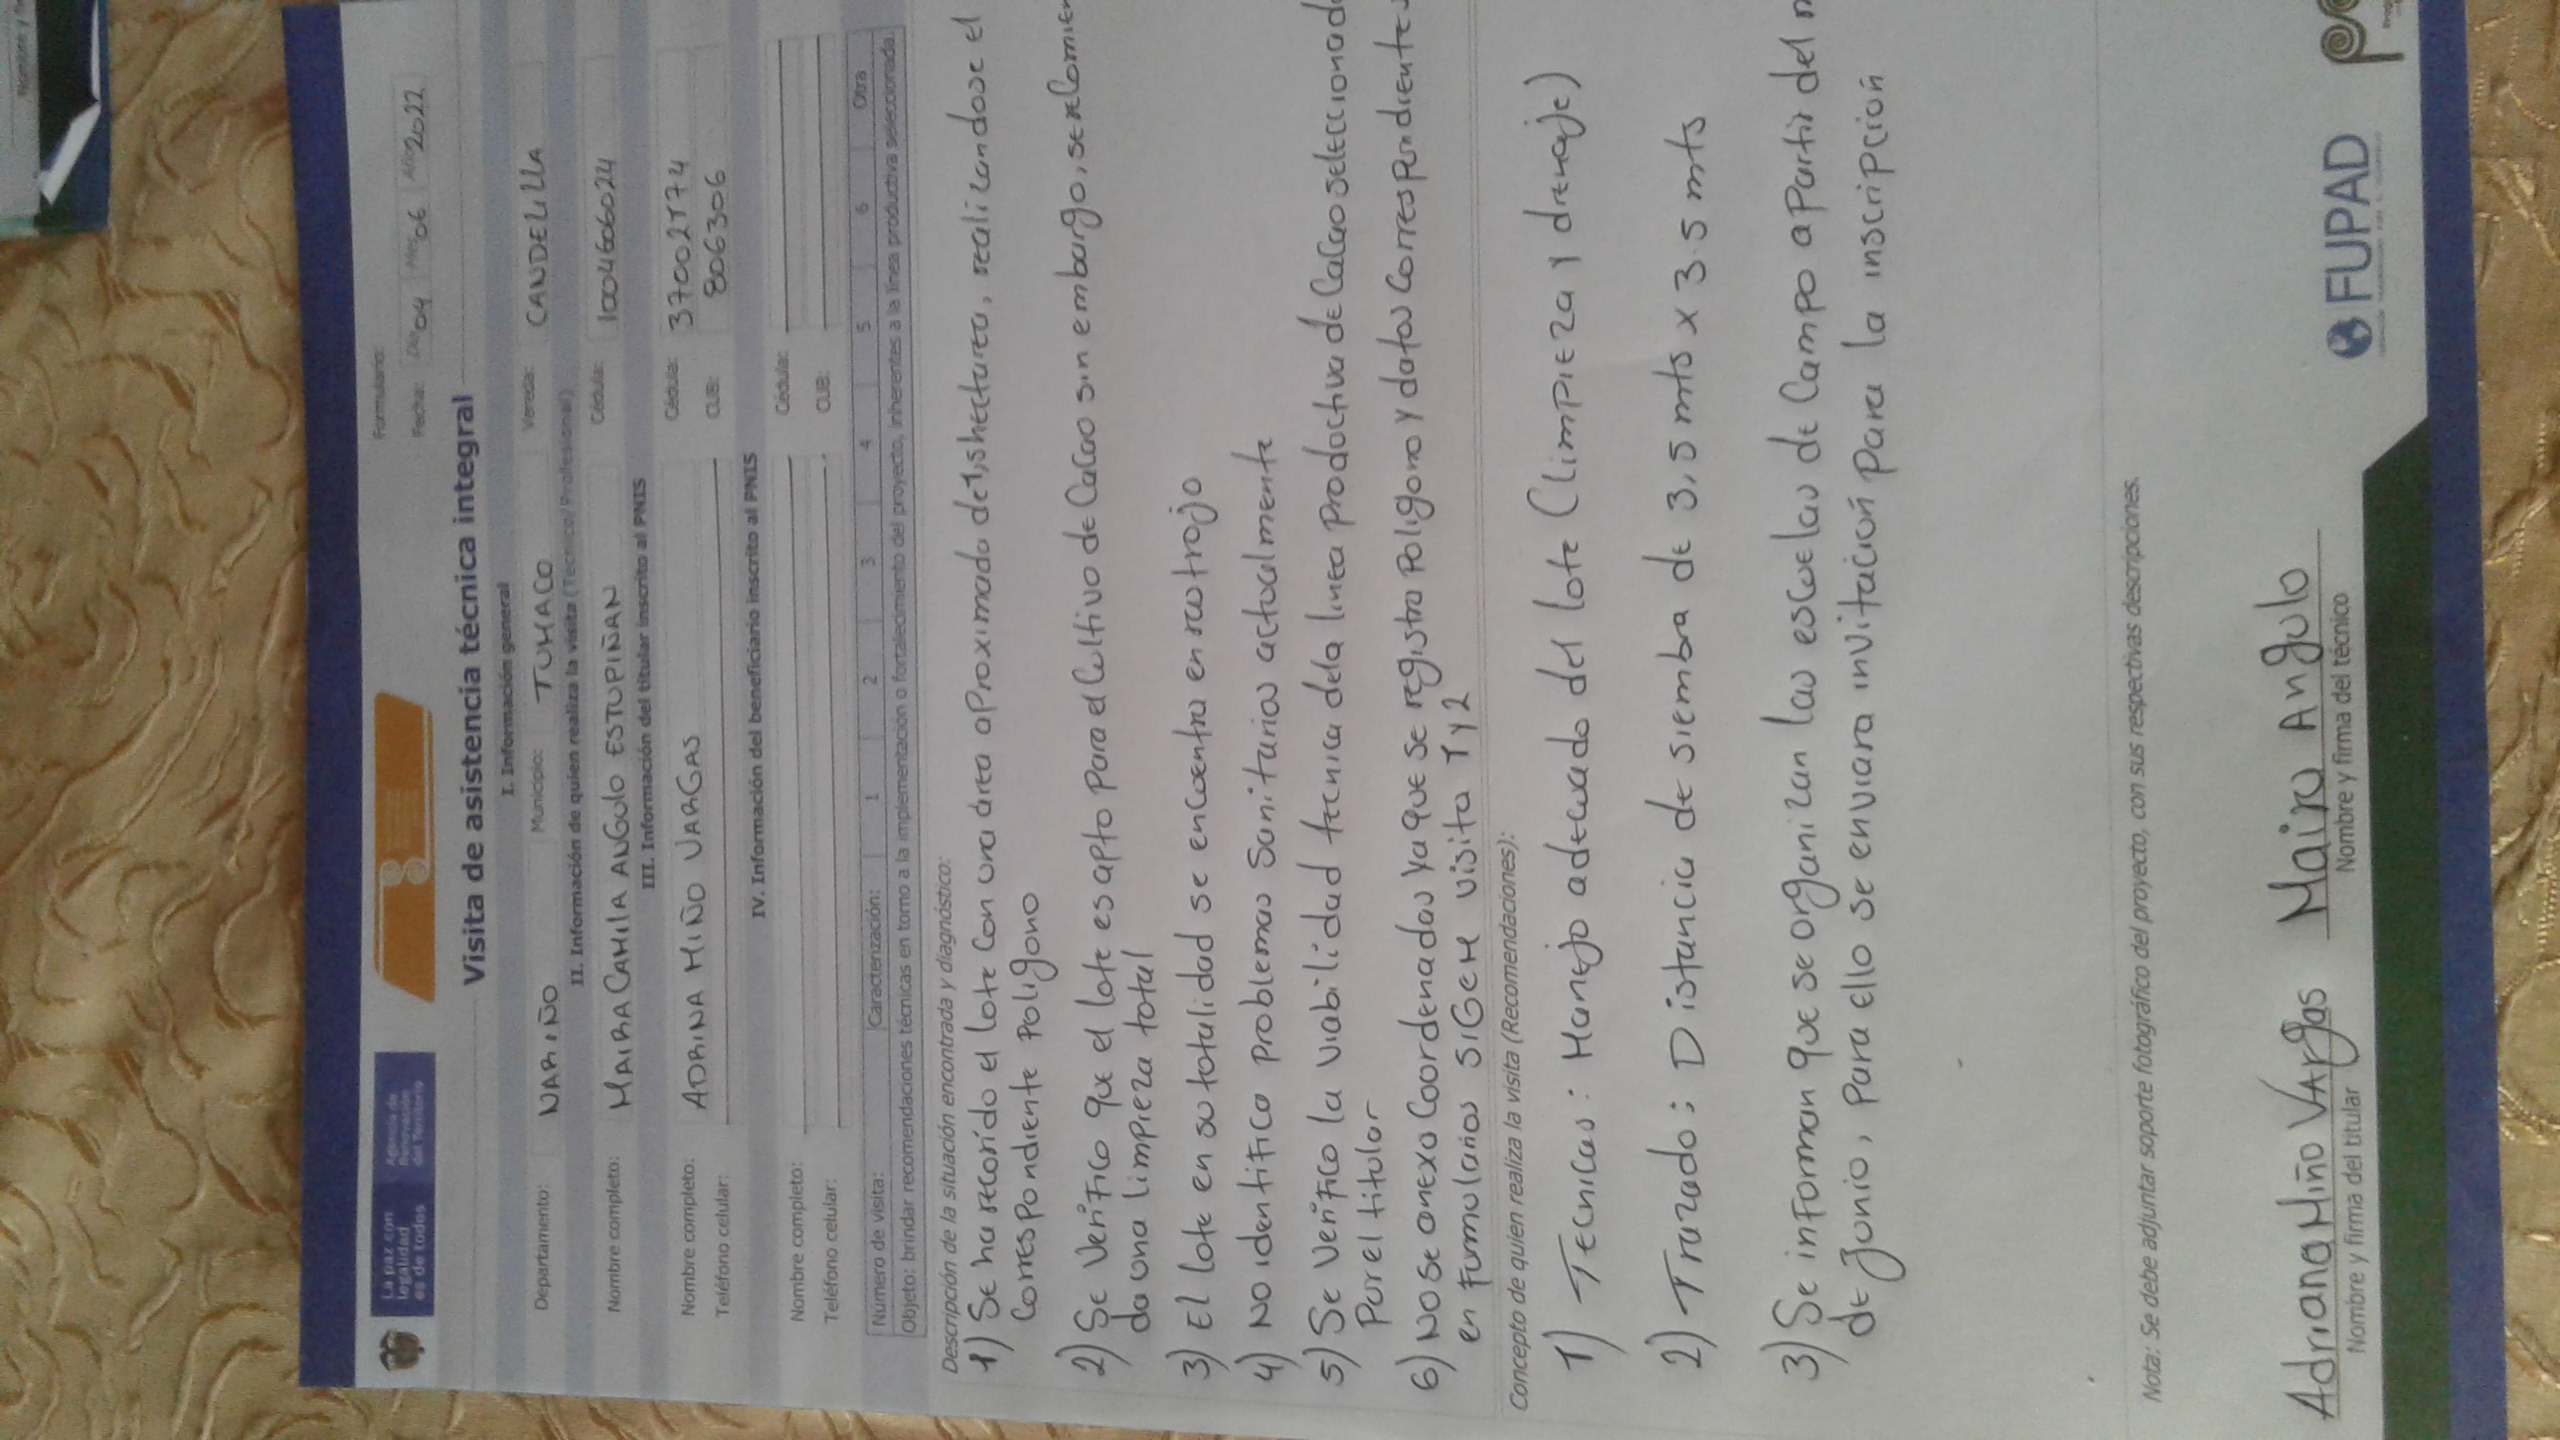 La paz con
legalidad
es de todos
Agencia de
Renovación
del Territorio
Formulario:
Fecha: Día 04 Mes 06 Año 2022
Visita de asistencia técnica integral
I. Información general
Departamento: NARIÑO Municipio: TUMACO Vereda: CANDELILLA
II. Información de quien realiza la visita (Técnico/Profesional)
Nombre completo: MAIRA CAMILA ANGULO ESTUPIÑAN Cédula: 1004606024
III. Información del titular inscrito al PNIS
Nombre completo: ADRINA MIÑO VARGAS Cédula: 370021774
Teléfono celular: CUB: 806306
IV. Información del beneficiario inscrito al PNIS
Nombre completo: Cédula:
Teléfono celular: CUB:
Número de visita: Caracterización: 1 2 3 4 5 6 Otra
Objeto: brindar recomendaciones técnicas en torno a la implementación o fortalecimiento del proyecto, inherentes a la línea productiva seleccionada.
Descripción de la situación encontrada y diagnóstico:
1) Se ha recorrido el lote con una área aproximada de 1,5 hectarea, realizandose el
correspondiente Poligono
2) Se Verifico que el lote es apto para el cultivo de Cacao sin embargo, se
da una limpieza total
3) El lote en su totalidad se encuentra en rastrojo
4) No identifico problemas sanitarios actualmente
5) Se Verifico la viabilidad tecnica de la linea productiva de Cacao
Por el titular
6) No se anexa Coordenadas ya que se registra Poligono y datos correspondientes
en Formularios SIGEM visita 1 y 2
Concepto de quien realiza la visita (Recomendaciones):
1) Tecnicas: Manejo adecuado del lote (limpieza y drenaje)
2) Trazado: Distancia de siembra de 3,5 mts x 3.5 mts
3) Se informan que se organizan las escuelas de Campo a Partir del
de Junio, Para ello se enviara invitación Para la inscripción
Nota: Se debe adjuntar soporte fotográfico del proyecto, con sus respectivas descripciones.
Adriana Miño Vargas Maira Angulo
Nombre y firma del titular Nombre y firma del técnico
FUPAD